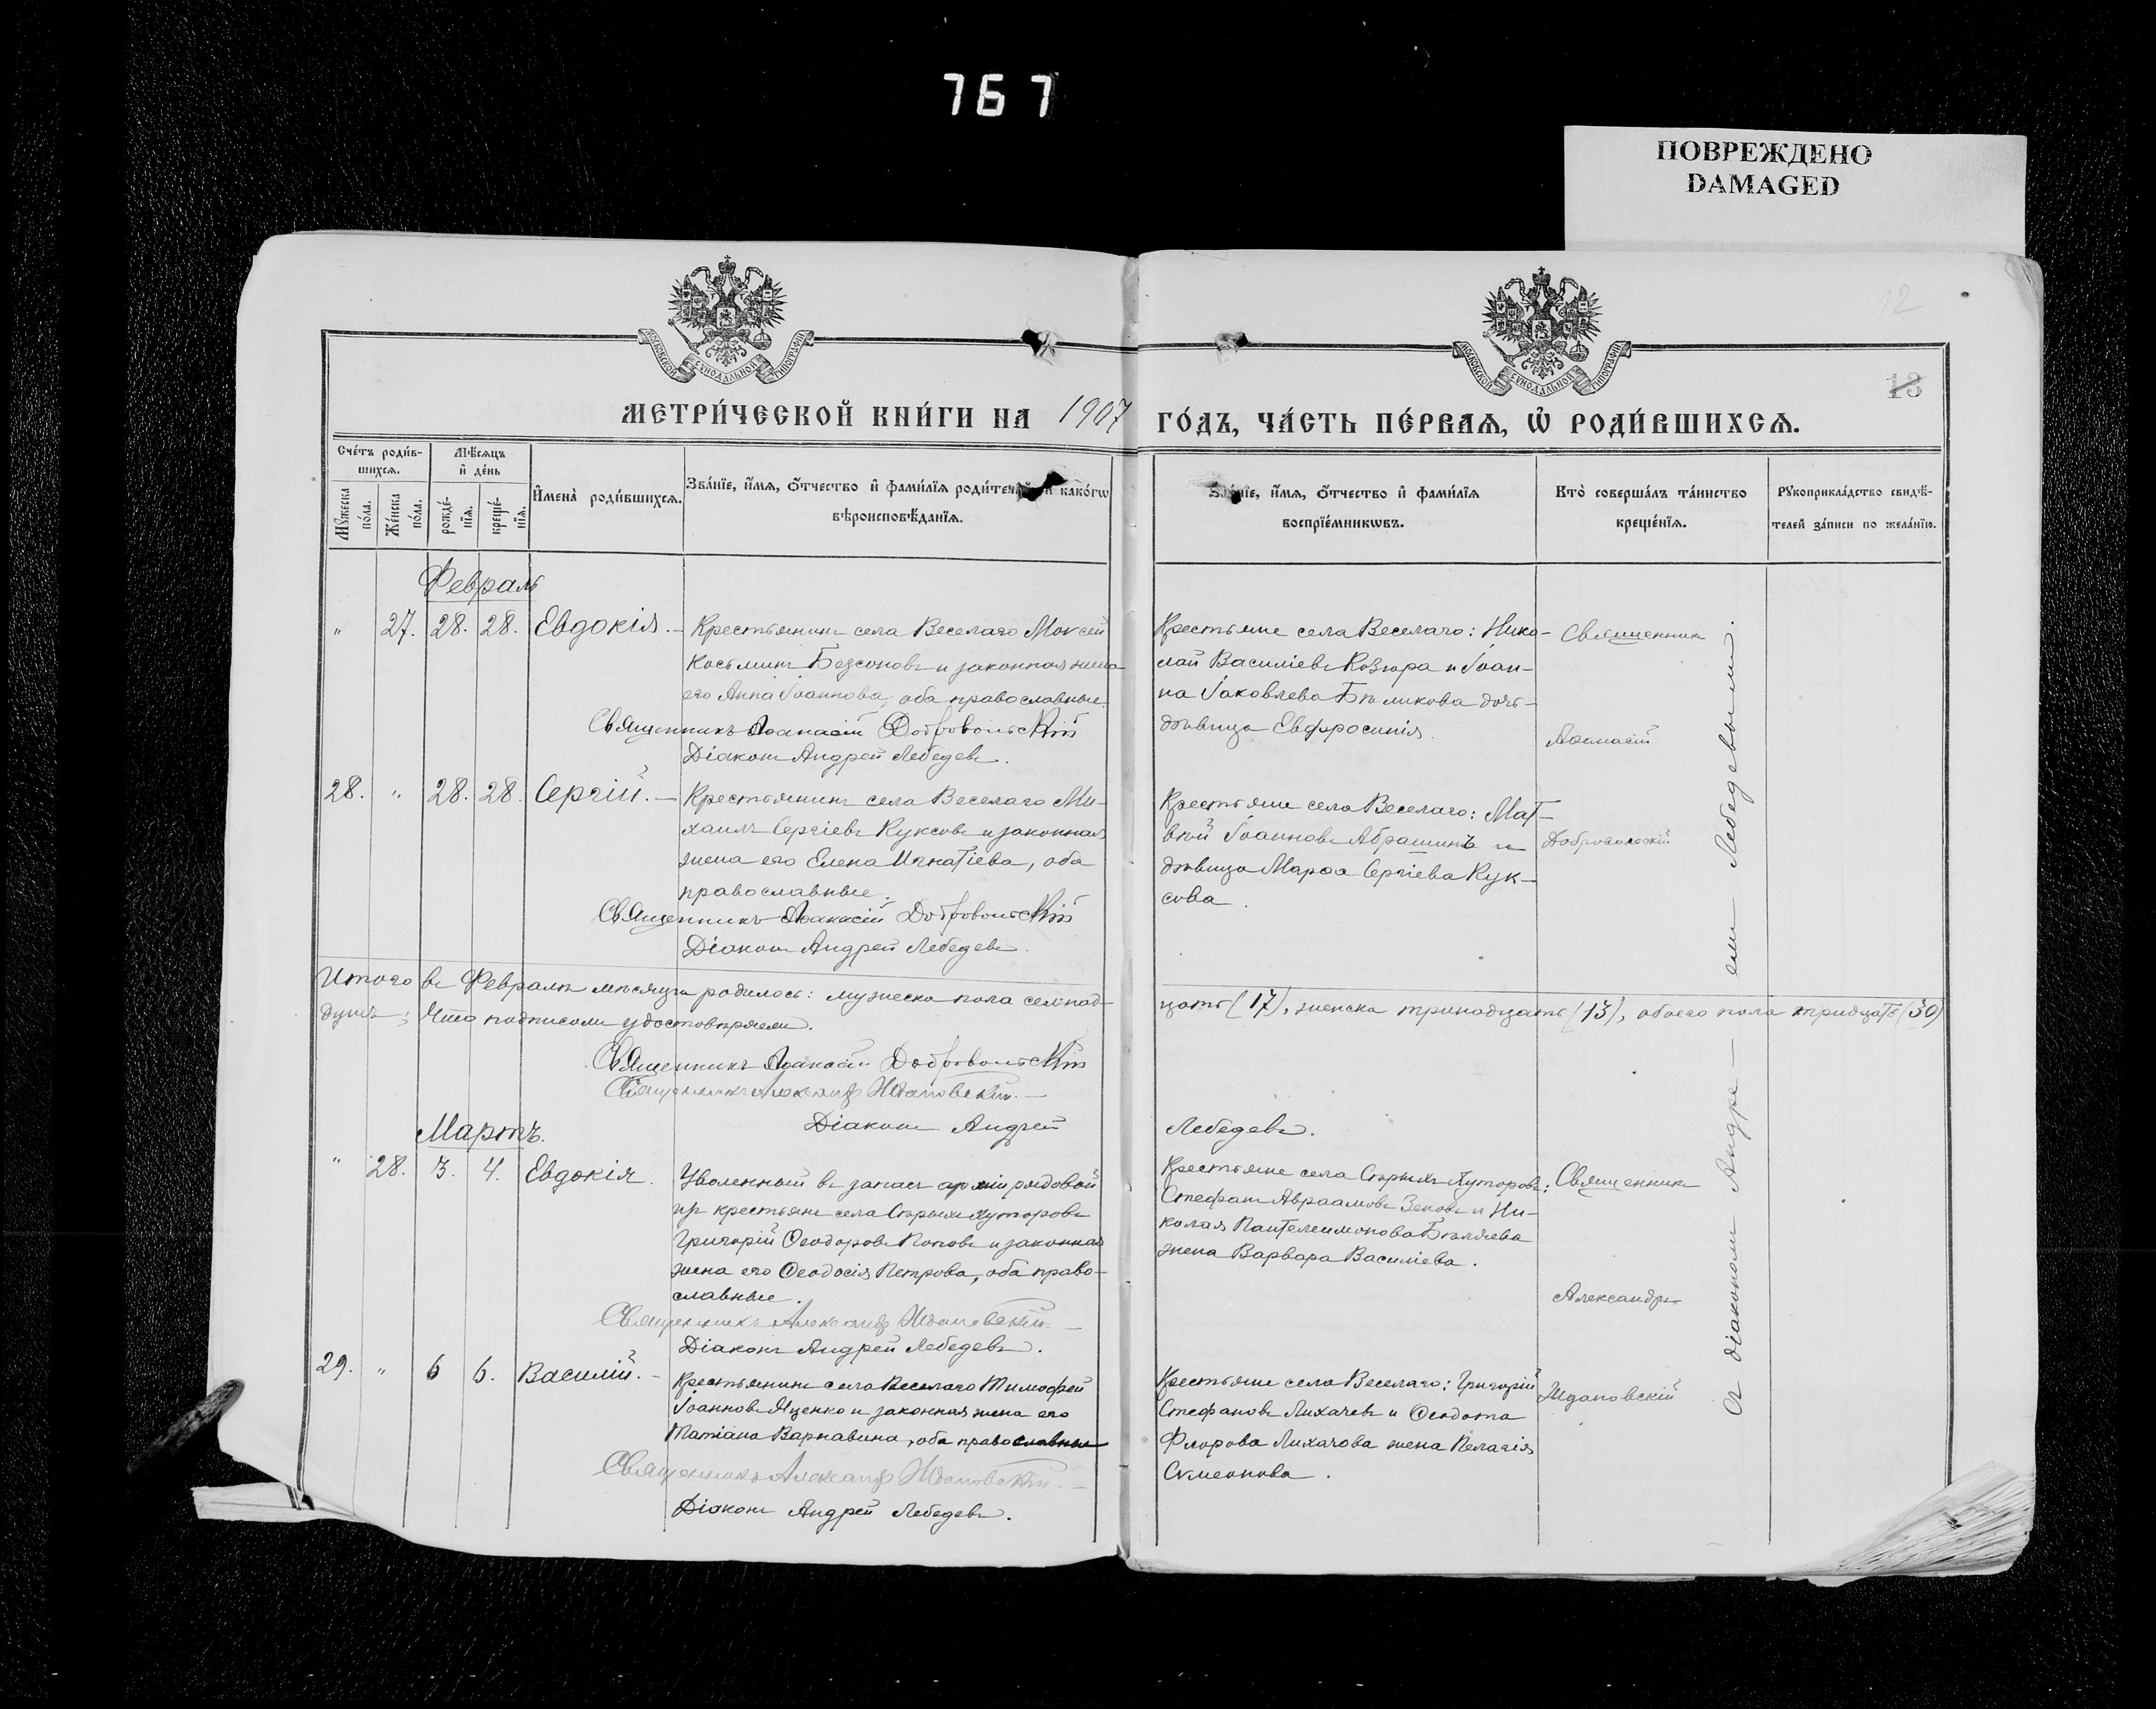 767
ПОВРЕЖДЕНО
DAMAGED
12
13
МОСКОВСКОЙ СѴНОДАЛЬНОЙ ТИПОГРАФІИ
МОСКОВСКОЙ СѴНОДАЛЬНОЙ ТИПОГРАФІИ
МЕТРИ́ЧЕСКОЙ КНИ́ГИ НА 1907 ГО́ДЪ, ЧА́СТЬ ПЕ́РВАЯ, Ѡ҆ РОДИ́ВШИХСЯ.
Сче́тъ роди́в-
шихся.
Мѣ́сяцъ
и҆ де́нь
Мꙋ́жеска по́ла.
Же́нска по́ла.
рожде́-
нїѧ.
креще́-
нїѧ.
И҆мена̀ роди́вшихся.
Зва́нїе, и҆́мя, ѻ҆́тчество и҆ фами́лїя роди́телей и како́гѡ
вѣроисповѣ́данїя.
Зва́нїе, и҆́мя, ѻ҆́тчество и҆ фами́лїя
воспрїе́мникѡвъ.
Кто̀ соверша́лъ та́инство
креще́нїя.
Рꙋкоприкла́дство свидѣ́-
телей за́писи по жела́нїю.
Февраль
" 27. 28. 28. Евдокія. – Крестьянинъ села Веселаго Моѵсей
Косьминъ Безсоновъ и законная жена
его Анна Іоаннова, оба православные.
Священникъ Аѳанасій Добровольскій
Діаконъ Андрей Лебедевъ.
Крестьяне села Веселаго: Нико-
лай Василіевъ Козюра и Іоан-
на Іаковлева Бѣликова дочь-
дѣвица Евфросинія.
Священникъ
Аѳанасій
28. " 28. 28. Сергій. – Крестьянинъ села Веселаго Ми-
хаилъ Сергіевъ Куксовъ и законная
жена его Елена Игнатіева, оба
православные.
Священникъ Аѳанасій Добровольскій
Діаконъ Андрей Лебедевъ.
Крестьяне села Веселаго: Мат-
вѣй Іоанновъ Абрашинъ и
дѣвица Марѳа Сергіева Кук-
сова.
Добровольскій
Итого въ Февралѣ мѣсяцѣ родилось: мужеска пола семнад-
цать (17), женска тринадцать (13), обоего пола тридцать (30)
душъ; Что подписомъ удостовѣряемъ.
Священникъ Аѳанасій Добровольскій
Священникъ Александръ Ждановскій. –
Діаконъ Андрей Лебедевъ.
Мартъ.
" 28. 3. 4. Евдокія. Уволенный въ запасъ арміи рядовой
изъ крестьянъ села Старыхъ Хуторовъ
Григорій Ѳеодоровъ Поповъ и законная
жена его Ѳеодосія Петрова, оба право-
славные.
Священникъ Александръ Ждановскій. –
Діаконъ Андрей Лебедевъ.
Крестьяне села Старыхъ Хуторовъ:
Стефанъ Авраамовъ Зеновъ и Ни-
колая Пантелеимонова Бѣляева
жена Варвара Василіева.
Священникъ
Александръ
29. " 6 6. Василій. – Крестьянинъ села Веселаго Тимоѳей
Іоанновъ Яценко и законная жена его
Татіана Варнавина, оба православные
Священникъ Александръ Ждановскій. –
Діаконъ Андрей Лебедевъ.
Крестьяне села Веселаго: Григорій
Стефановъ Лихачевъ и Ѳеодота
Флорова Лихачова жена Пелагія
Сѵмеонова.
Ждановскій
Съ діакономъ Андре – емъ Лебедевымъ.